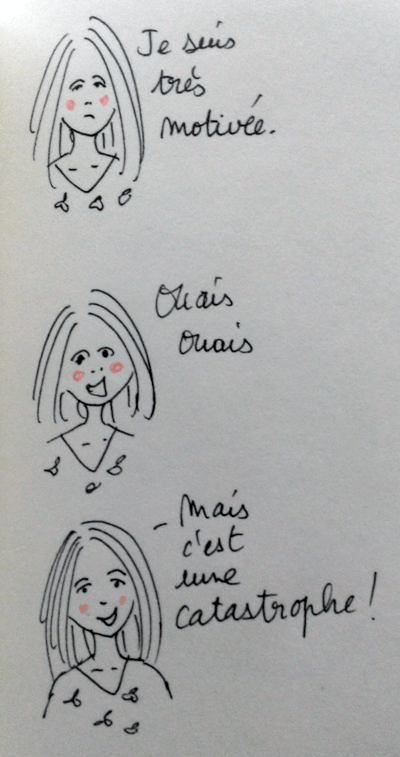 Je suis
très
motivée.
Ouais
ouais
- Mais
c'est
une
catastrophe !